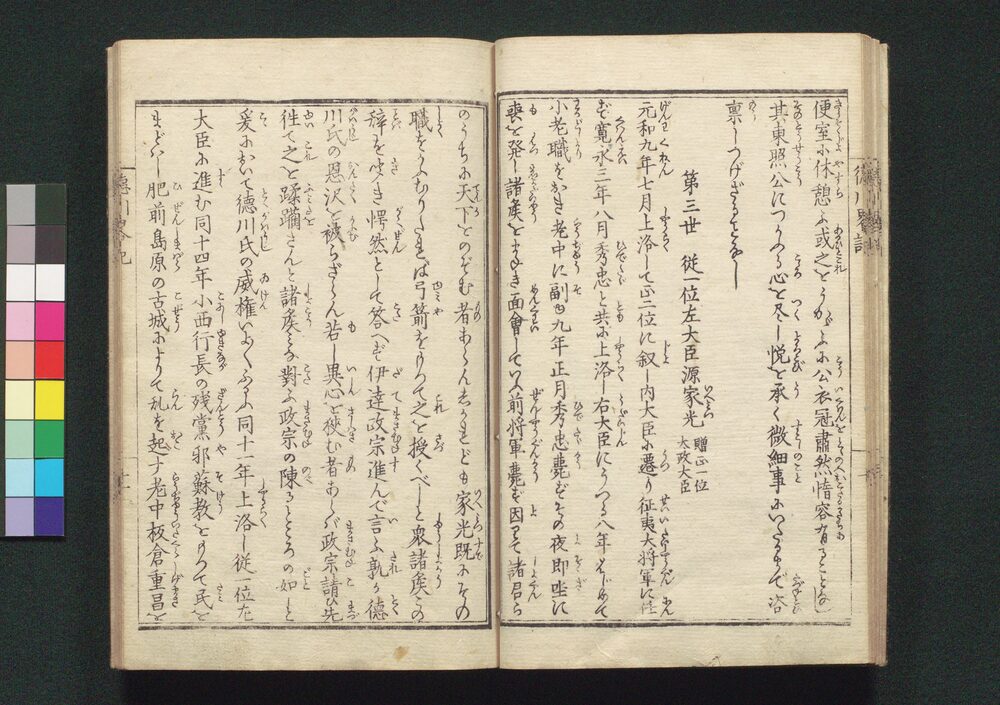 便室に休憩ふ或之をうかゞふに公衣冠肅然惰容有ることなし
其東照公につかふる心を尽し悦を承く微細事にいたるまで咨
禀しつげざることなし
第三世　従一位左大臣源家光 贈正一位太政大臣
元和九年七月上洛して正二位に叙し内大臣に遷り征夷大将軍に任
ず寛永三年八月秀忠と共に上洛し右大臣にうつる八年はじめて
小老職をおき老中に副ふ九年正月秀忠薨ずその夜即坐に
喪を発し諸矦をまねき面會していふ前将軍薨ず因りて諸君ら
のうちに天下をのぞむ者あらんしかれども家光既にその
職をうけたまはりたれば弓箭をもつて之を授くべしと衆諸矦この
辞をきき愕然として答へず伊達政宗進んで言ふ孰か徳
川氏の恩沢を被らざらん若し異心を狭む者あらバ政宗請ひ先
徃て之を蹂躙さんと諸矦みな對ふ政宗の陳るところの如しと
爰において徳川氏の威権いよ〱ふるふ同十一年上洛し従一位左
大臣に進む同十四年小西行長の残黨邪蘇教をもつて民を
まどハし肥前島原の古城によりて乱を起す老中板倉重昌を
徳川畧記
十一